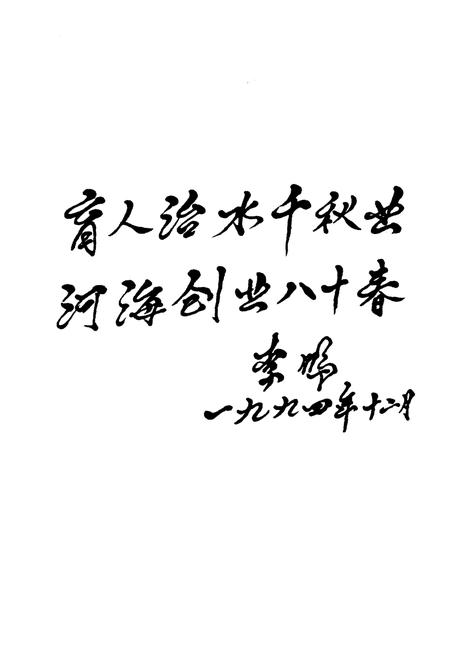 育人治水千秋业
河海创业八十春
李鹏
一九九四年十二月